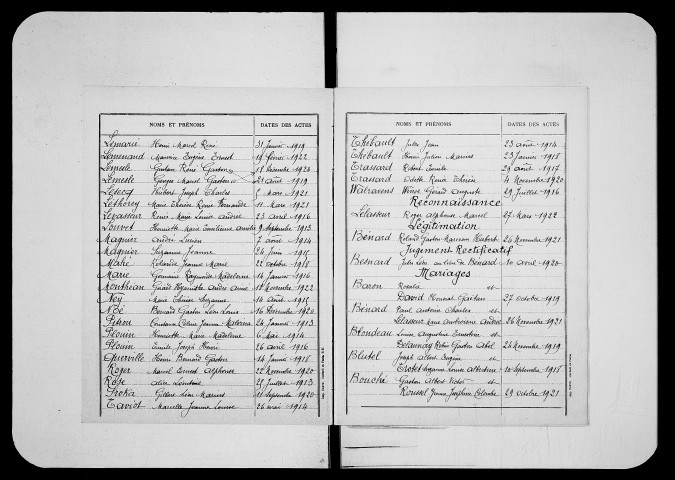 NOMS ET PRÉNOMS DATES DES ACTES
Lemarié Henri Marcel René 31 Janvier 1919
Lemenand Maurice Eugène Ernest 19 février 1922
Lemesle Gaston René Gaston 18 Décembre 1920
Lemesle Georges Marcel Gaston 21 août 1919
Letocq Humbert Joseph Charles 8 Mars 1921
Lethorey Marie Thérèse Renée Fernande 11 Mars 1921
Levasseur Renée Marie Louise Andrée 23 avril 1916
Louvet Henriette Marie Emilienne 9 Septembre 1913
Magnier André Lucien 7 août 1914
Magnier Suzanne Jeanne 24 Juin 1915
Mahé Rolande Jeanne Marie 22 octobre 1918
Marie Germaine Raymonde Madeleine 14 Janvier 1916
Monthéan André Aimé 18 Novembre 1922
Ney Marie Louise Suzanne 14 août 1915
Noé Bernard Gaston Léon Louis 16 Décembre 1920
Constance Céline Jeanne 26 Janvier 1913
Plouin Henriette Marie Madeleine 6 Mai 1914
Plouin Emile Joseph Henri 26 avril 1916
Henri Bernard Gaston 14 Janvier 1918
Roger Marcel Ernest Alphonse 22 Novembre 1920
Rose Alice 29 Juillet 1913
Gilbert Léon Marius 11 Septembre 1920
Taviot Marcelle Jeanne Louise 26 mai 1914
NOMS ET PRÉNOMS DATES DES ACTES
Thébault Jules Jean 23 août 1914
Thébault Henri Julien Marius 23 Janvier 1918
Trassard Robert Emile 29 août 1917
Trassard Odette Renée Thérèse 4 Novembre 1920
Walravens Gérard Auguste 29 Juillet 1916
Reconnaissance
Levasseur Roger Alphonse Marcel 27 Mars 1922
Légitimation
Bénard Roland Gaston Maurice Humbert 26 Novembre 1921
Jugement Rectificatif
Besnard Jules Léon au lieu de Bénard 10 avril 1920
Mariages
Baron Rosalie et
David Honoré Gaston 27 octobre 1919
Bénard Paul Antoine Charles et
Levasseur Marie Ambroisine Andrée 26 Novembre 1921
Blondeau Louise Augustine et
Delaunay Robin Gaston Abel 24 Novembre 1919
Blutel Joseph Albert Eugène et
Trotel Suzanne Louise Albertine 10 Septembre 1918
Bouché Gaston Albert Victor et
Roussel Jeanne Joséphine Colombe 29 octobre 1921